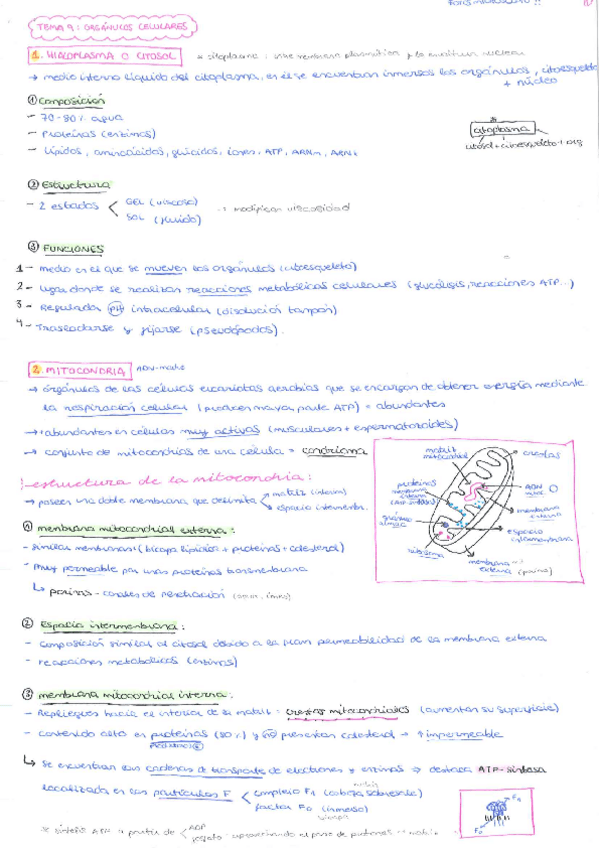 TEMA 9: ORGÁNULOS CELULARES
1. HIALOPLASMA O CITOSOL * citoplasma: entre membrana plasmática y la envoltura nuclear
→ medio interno líquido del citoplasma, en él se encuentran inmersos los orgánulos, citoesqueleto
+ núcleo
① Composición
- 70-80% agua
- Proteínas (enzimas)
- Lípidos, aminoácidos, glúcidos, iones, ATP, ARNm, ARNt
citoplasma
citosol + citoesqueleto + org
② Estructura
- 2 estados < GEL (viscoso)
SOL (fluido)
→ modifican viscosidad
③ FUNCIONES
1 - medio en el que se mueven los orgánulos (citoesqueleto)
2 - lugar donde se realizan reacciones metabólicas celulares (glucólisis, reacciones ATP...)
3 - Regulador pH intracelular (disolución tampón)
4 - Trasladarse y fijarse (pseudópodos).
2. MITOCONDRIA ADN-madre
→ orgánulos de las células eucariotas aerobias que se encargan de obtener energía mediante
la respiración celular (producen mayor parte ATP) = abundantes
→ abundantes en células muy activas (musculares + espermatozoides)
→ conjunto de mitocondrias de una célula = condrioma
estructura de la mitocondria:
→ poseen una doble membrana que delimita < matriz (interna)
espacio intermembr.
matriz mitocondrial
crestas
proteínas membrana interna
ADN mitoc.
membrana interna
gránulo
espacio intermembrana
ribosoma
membrana externa (porinas)
① membrana mitocondrial externa:
- similar membranas (bicapa lipídica + proteínas + colesterol)
- muy permeable por unas proteínas transmembrana
↳ porinas - canales de penetración
② Espacio intermembrana:
- composición similar al citosol debido a la gran permeabilidad de la membrana externa
- reacciones metabólicas (enzimas)
③ membrana mitocondrial interna:
- Repliegues hacia el interior de la matriz = crestas mitocondriales (aumentan su superficie)
- contenido alto en proteínas (80%) y no presentan colesterol → ↑ impermeable
↳ se encuentran las cadenas de transporte de electrones y enzimas → destaca ATP-sintasa
localizada en las partículas F < complejo F1 (cabeza sobresale)
matriz
factor F0 (inmerso)
se sintetiza ATP a partir de < ADP
F1
F0